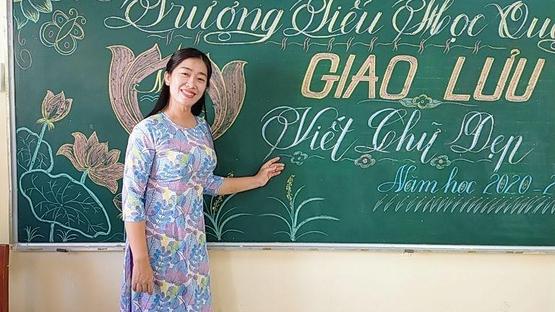 Trường Tiểu Học Qu
GIAO LƯU
Viết Chữ Đẹp
Năm học 2020-2